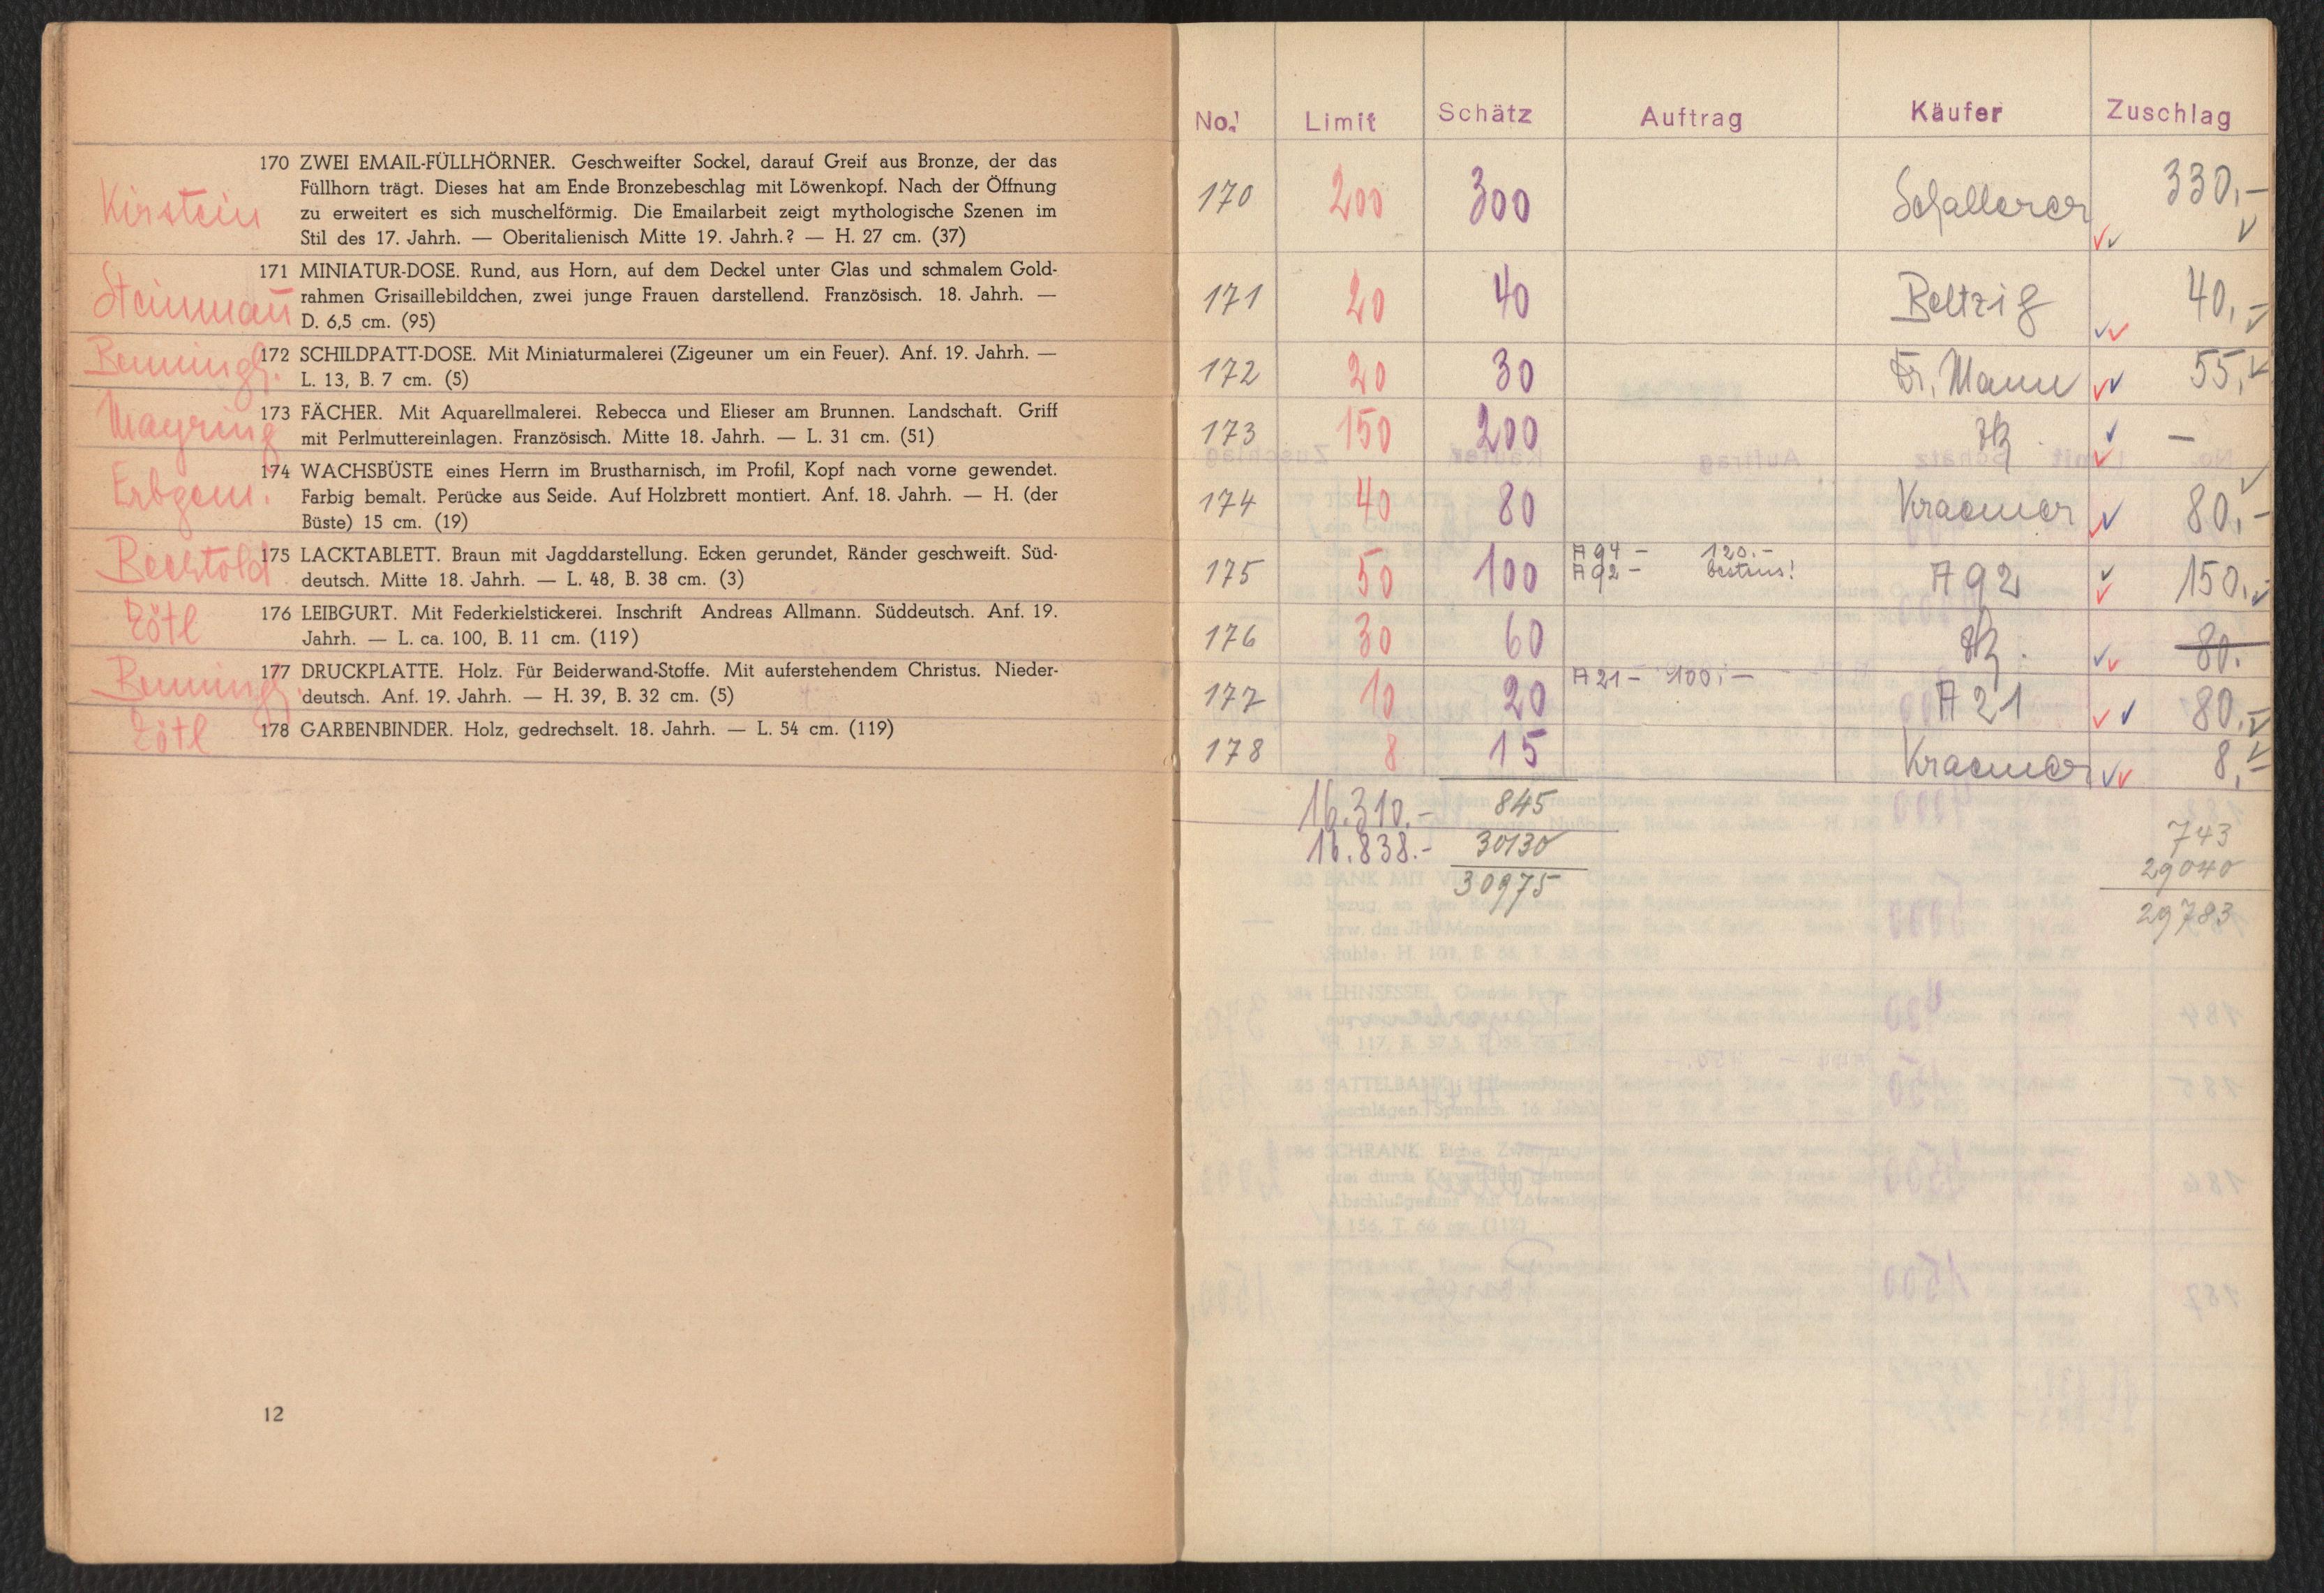 Kirstein
170 ZWEI EMAIL-FÜLLHÖRNER. Geschweifter Sockel, darauf Greif aus Bronze, der das
Füllhorn trägt. Dieses hat am Ende Bronzebeschlag mit Löwenkopf. Nach der Öffnung
zu erweitert es sich muschelförmig. Die Emailarbeit zeigt mythologische Szenen im
Stil des 17. Jahrh. — Oberitalienisch Mitte 19. Jahrh.? — H. 27 cm. (37)
171 MINIATUR-DOSE. Rund, aus Horn, auf dem Deckel unter Glas und schmalem Gold-
rahmen Grisaillebildchen, zwei junge Frauen darstellend. Französisch. 18. Jahrh. —
D. 6,5 cm. (95)
172 SCHILDPATT-DOSE. Mit Miniaturmalerei (Zigeuner um ein Feuer). Anf. 19. Jahrh. —
L. 13, B. 7 cm. (5)
Mayring
173 FÄCHER. Mit Aquarellmalerei. Rebecca und Elieser am Brunnen. Landschaft. Griff
mit Perlmuttereinlagen. Französisch. Mitte 18. Jahrh. — L. 31 cm. (51)
Erbgem.
174 WACHSBÜSTE eines Herrn im Brustharnisch, im Profil, Kopf nach vorne gewendet.
Farbig bemalt. Perücke aus Seide. Auf Holzbrett montiert. Anf. 18. Jahrh. — H. (der
Büste) 15 cm. (19)
Bechtold
175 LACKTABLETT. Braun mit Jagddarstellung. Ecken gerundet, Ränder geschweift. Süd-
deutsch. Mitte 18. Jahrh. — L. 48, B. 38 cm. (3)
Zötl
176 LEIBGURT. Mit Federkielstickerei. Inschrift Andreas Allmann. Süddeutsch. Anf. 19.
Jahrh. — L. ca. 100, B. 11 cm. (119)
177 DRUCKPLATTE. Holz. Für Beiderwand-Stoffe. Mit auferstehendem Christus. Nieder-
deutsch. Anf. 19. Jahrh. — H. 39, B. 32 cm. (5)
Zötl
178 GARBENBINDER. Holz, gedrechselt. 18. Jahrh. — L. 54 cm. (119)
12
No. Limit Schätz Auftrag Käufer Zuschlag
170 200 300 Schallerer 330,—
171 20 40 Beltzig 40,—
172 20 30 Fr. Mann 55,
173 150 200 —
174 40 80 Kraemer 80,—
175 50 100 A 94 — 120.—
A 92 — bestens! A 92 150.
176 30 60 80.
177 10 20 A 21 — 100,— A 21 80,—
178 8 15 Kraemer 8,—
16.310.— 845
16.838.— 30130
30975
743
29040
29783